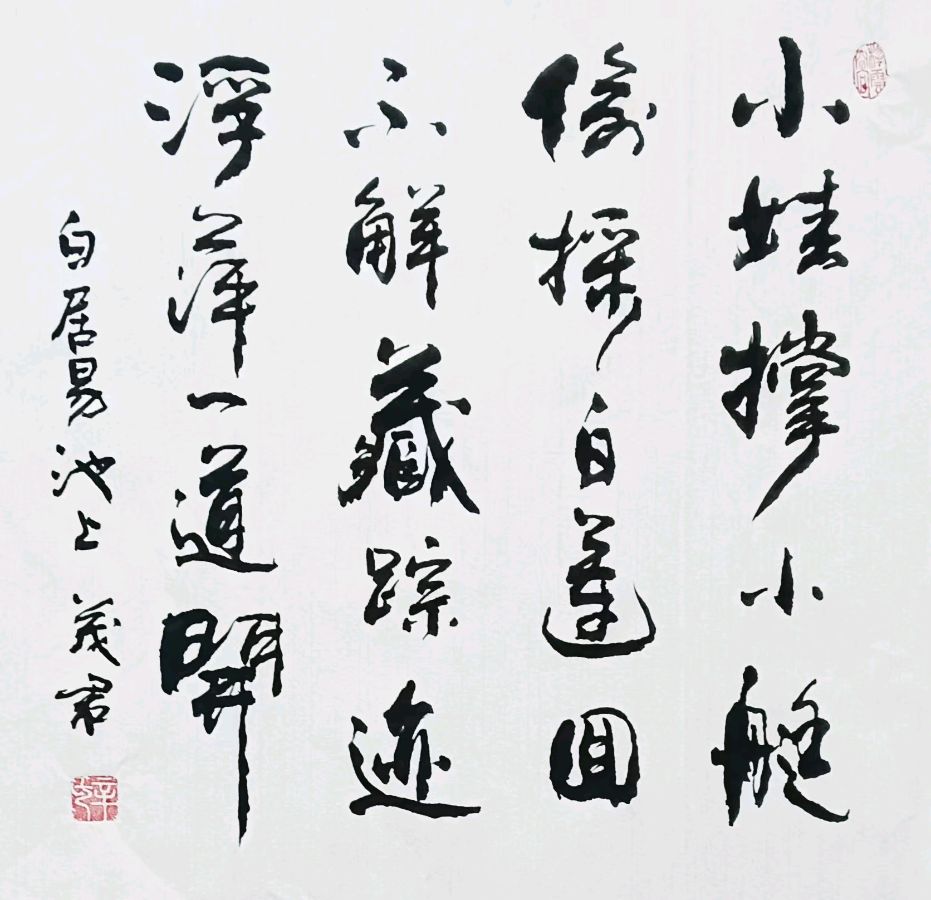 小娃撑小艇
偷採白蓮回
不解藏踪迹
浮萍一道開
白居易池上 茂君